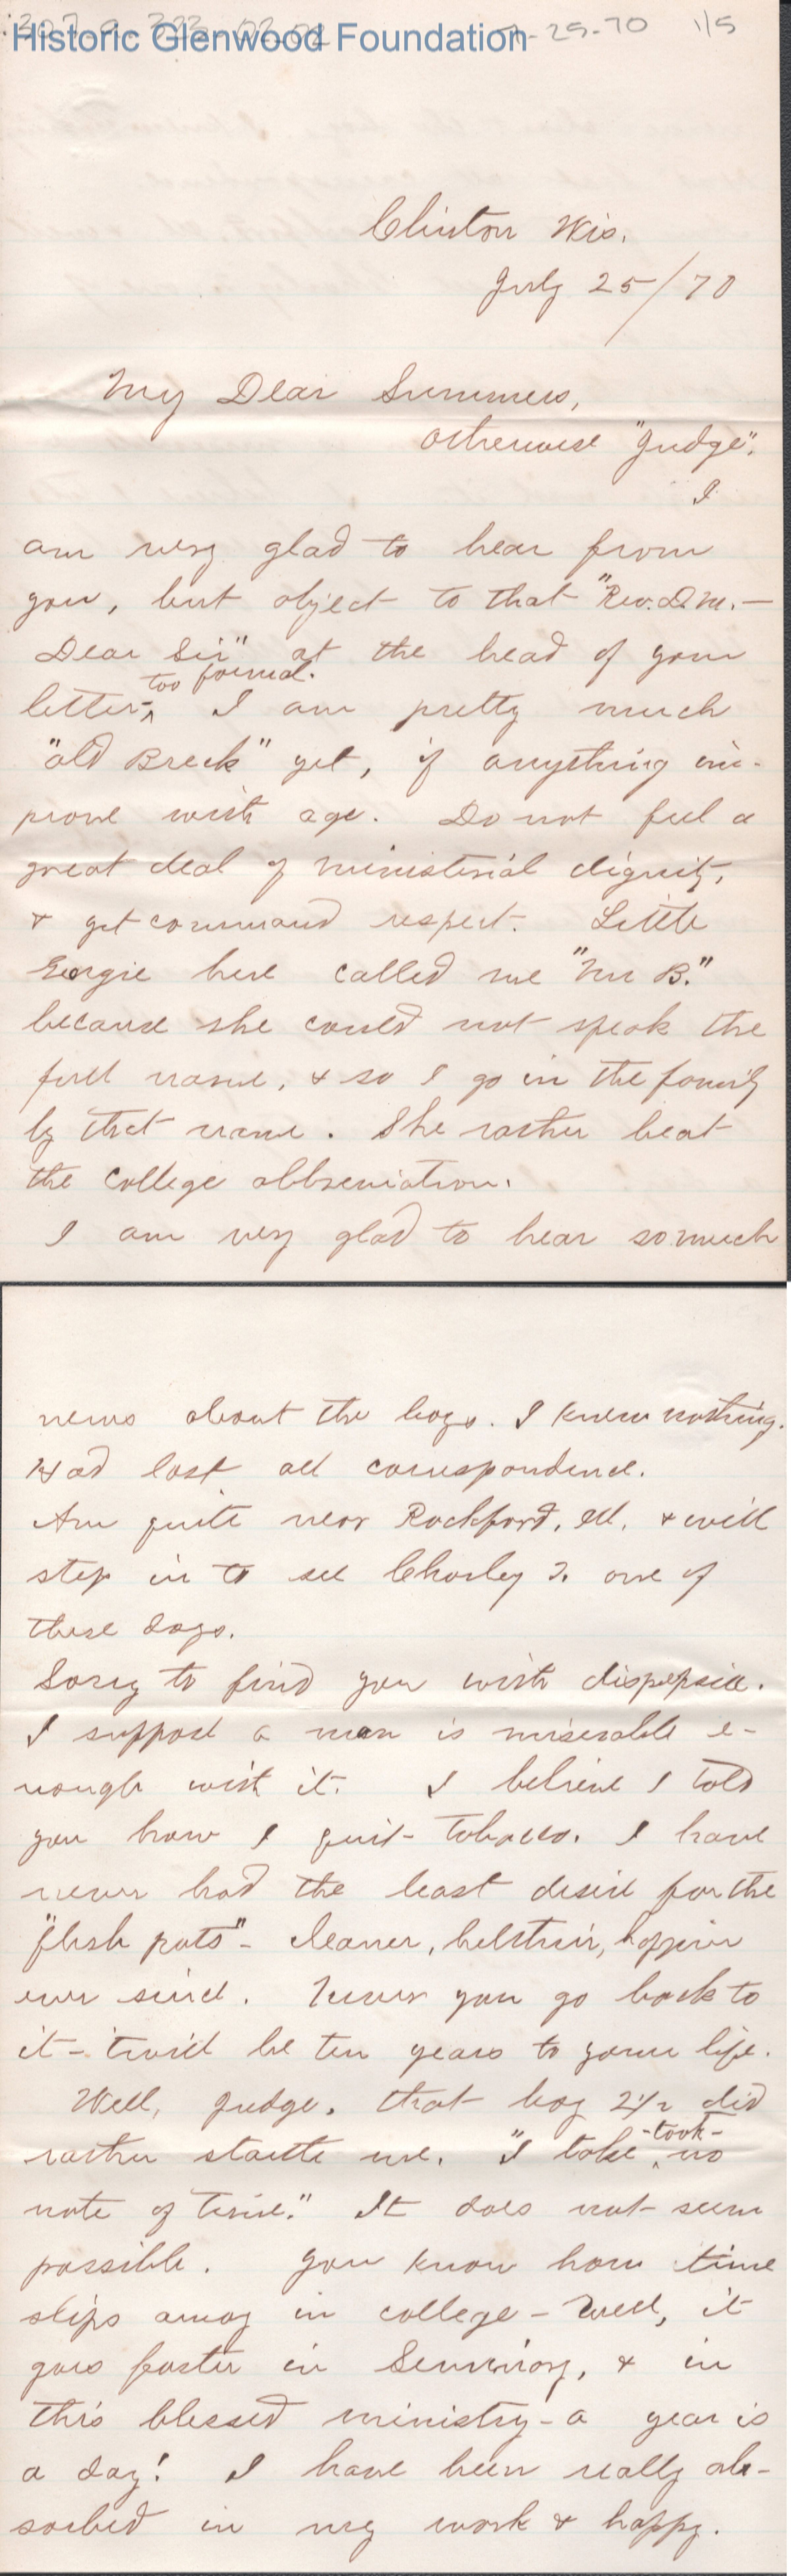 Historic Glenwood Foundation
-25-70 1/5
Clinton Wis.
July 25/70
My Dear Summers,
otherwise "Judge".
I
am very glad to hear from
you, but object to that "Rev. D.M.—
Dear Sir" at the head of your
too formal.
letter-, I am pretty much
"old Breck" yet, if anything im-
prove with age. Do not feel a
great deal of ministerial dignity,
& yet command respect. Little
Georgie here called me "Mr B."
because she could not speak the
full name, & so I go in the family
by that name. She rather beat
the college abbreviation.
I am very glad to hear so much
news about the boys. I knew nothing.
Had lost all correspondence.
Am quite near Rockford, Ill. & will
step in to see Charley I. one of
these days.
Sorry to find you with dispepsia.
I suppose a man is miserable e-
nough with it. I believe I told
you how I quit tobacco. I have
never had the least desire for the
"flesh pots" - cleaner, helthier, happier
ever since. Never you go back to
it - twill be ten years to your life.
Well, Judge, that boy 2 1/2 did
rather startle me. "I take -took- no
note of time." It does not seem
possible. You know how time
slips away in college - Well, it
goes faster in Seminary, & in
this blessed ministry - a year is
a day! I have been really ab-
sorbed in my work & happy.